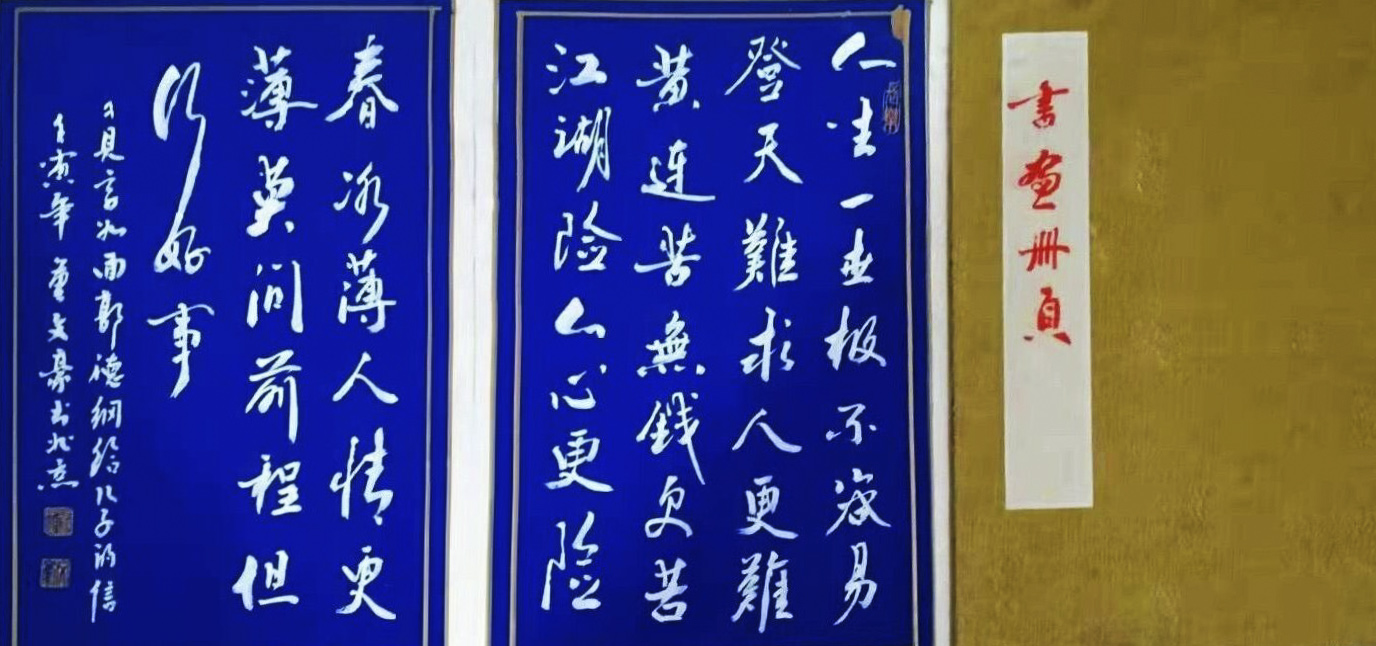 書畫冊頁
人生一世极不容易
登天難求人更難
黄連苦無錢更苦
江湖险人心更险
春冰薄人情更
薄莫问前程但
行好事
見字如面郭德纲给儿子的信
壬寅年文豪书於京